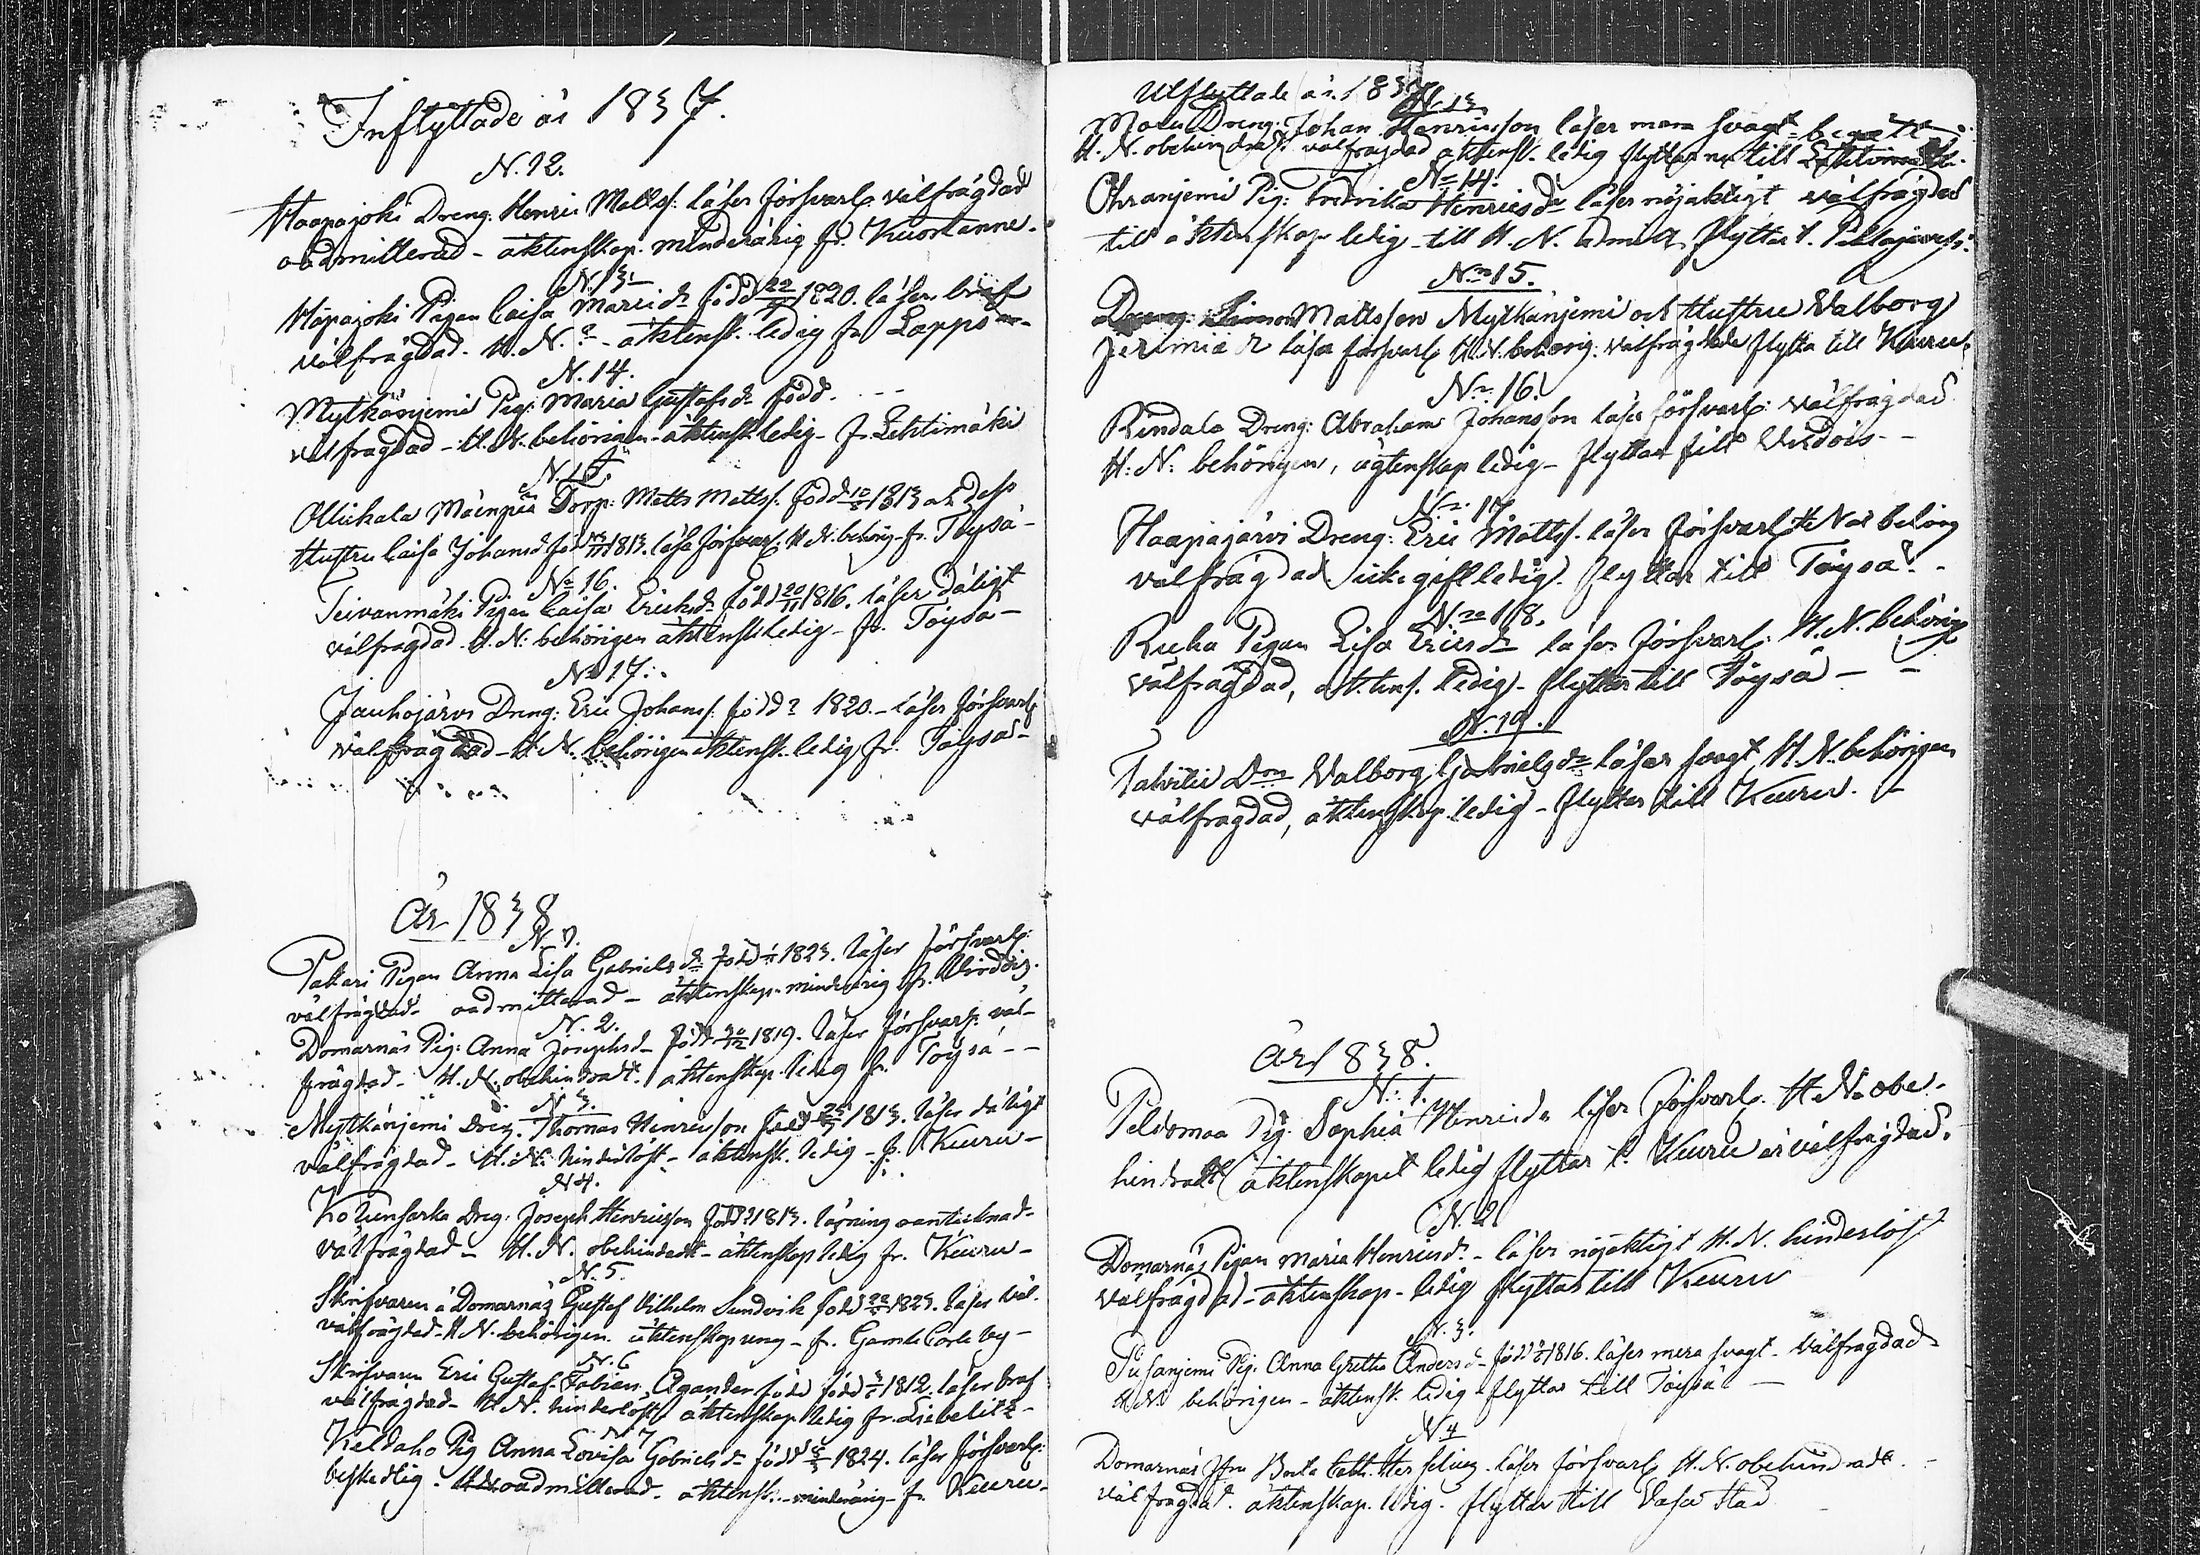 Inflyttade år 1837.
N. 12.
Haapajoki Dreng: Henric Matts: läser försvarl. välfrägdad
oadmitterad - äktenskap. minderårig fr. Kuortanne.
N. 13
Hapajoki Pigan Caisa Maria dr född 1820. läser braf
välfrägdad. H. N. ? - äktensk. ledig fr. Lappo
N. 14.
Mytkänjemi Pig: Maria Gustafs dr född. - -
välfragdad - H. N. behörigen - äktensk. ledig - fr. Lehtimäki
N. 15.
Ollickala Mäenpää Dorp: Matts Matts. född 1813 och dess
Hustru Caisa Johansd. född 1813. läsa försvarl. H. N. behörig. fr. Töysä -
No 16.
Teivanmäki Pigan Caisa Ericks dr född 20/11 1816. läser dåligt
välfragdad. H. N: behörigen äktensk. ledig - fr. Töysä -
No 17:.
Jauhojärvi Dreng: Eric Johans. född ? 1820. - läser försvarl
välfrägdad - H. N. behörigen äktensk. ledig fr. Töysä -
År 1838
N. 1.
Pakari Pigan Anna Lisa Gabriels dr född 1823. läser försvarl:
välfrägdad - oadmitterad - äktenskap. minderårig fr. Virdois.
N. 2.
Domarnäs Pig: Anna Josephsd - född 1819. läser försvarl. väl-
frägdad - H. N. obehindradt. äktenskap. ledig fr. Töysä - -
N 3.
Mytkänjemi Dreng. Thomas Henricsson född 1813. läser dåligt
välfrägdad - H. N. hinderlöst - äktensk. ledig - fr. Keuru -
N 4.
Dreg. Joseph Henricsson född ? 1813. läsning oantecknad -
välfrägdad - H. N. obehindradt - äktenskap ledig fr. Keuru -
N. 5.
Skrifvaren å Domarnäs Gustaf Vilhelm Sundvik född 1823. läser väl.
välfrägdad - H N. behörigen. äktenskap ung - fr. Gamle Carle by -
N. 6
Skrifvaren Eric Gustaf Fabian Agander född född 1812. läser braf
välfrägdad - H. N. hinderlöst, äktenskap ledig fr. Liebelitz -
N 7
Keldaho Pig Anna Lovisa Gabriels dr född 1824. läser försvarl:
beskedlig. oadmitterad. äktensk. - minderårig - fr. Keuru -
Utflyttade år. 1837
N. 13
Dreng. Johan Henricsson läser mera svagt
H. N. obehindradt. välfragdad äktensk. ledig flyttar nu till
No 14.
Ohranjemi Pig: Fredrika Henrics dr läser nöjaktigt välfrägdad
till äktenskap ledig - till H. N. flyttar t.
No 15.
Dreng: Simon Mattsson Mytkänjemi och Hustru Valborg
Jeremiæ dr läsa försvarl H. N. behörig. välfrägdade flytta till Keuru.
No. 16.
Rindala Dreng: Abraham Johansson läser försvarl: välfrägdad
H: N: behörigen, ägtenskap ledig - flyttar till Virdois - -
No. 17
Haapajärvi Dreng: Eric Matts. läser försvarl H. N at behörig
välfrägdad icke gift ledig. flyttar till Töysä. -
No 18.
Rucha Pigan Lisa Erics dr läser försvarl: H. N. behörig
välfrägdad, äktens. ledig - flyttar till Töysä - -
N. 19.
Valborg Gabriels dr läser svagt H. N. behörigen
välfragdad, äktenskap. ledig - flyttar till Keuru. -
År 1838.
N: 1.
Peldomaa Pig. Sophia Henrics dr läser försvarl. H. N. obe-
hindradt äktenskapet ledig flyttar t. Keuru är välfrägdad.
N. 2
Domarnäs Pigan Maria Henricsd. - läser nöjaktigt H. N. hinderlöst
välfrägdad - äktenskap - ledig flyttar till Keuru
N. 3.
Pig. Anna Gretha Anders d - född 1816. läser mera svagt - välfrägdad
H. N. behörigen - äktensk. ledig - flyttar till Töysä -
N 4
Domarnäs Jfru Cath: läser försvarl H. N. obehindradt. -
välfrägdad. äktenskap. ledig. flyttar till Vasa Stad -